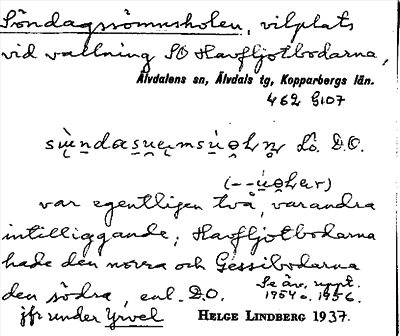 Söndagssömnsholen, vilplats
vid vallning SO Havfljotbodarna,
Älvdalens sn, Älvdals tg, Kopparbergs län.
462 G107
Lö. D.O.
var egentligen två, varandra
intilliggande; Havfljotbodarna
hade den norra och Gessibodarna
den södra, enl. D.O.
Se äv. uppt.
1954 o. 1956.
jfr under Yrvel
HELGE LINDBERG 1937.